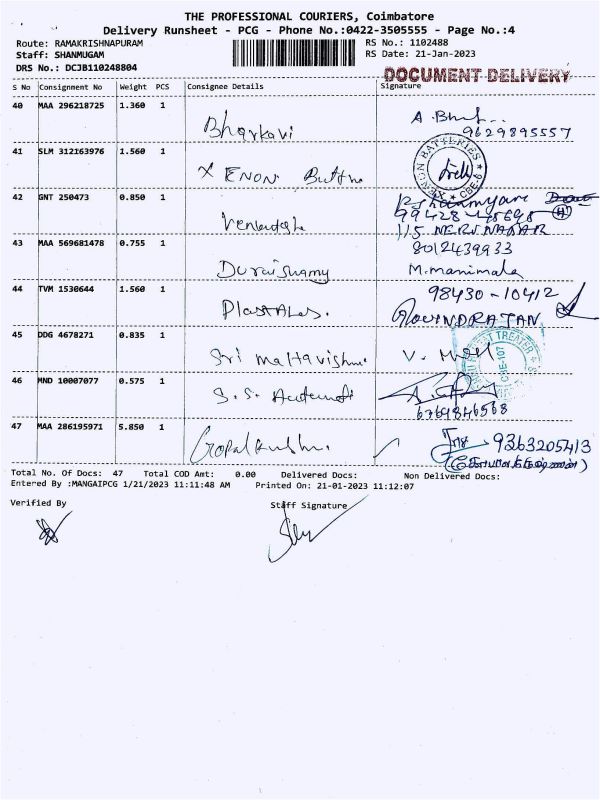 THE PROFESSIONAL COURIERS, Coimbatore
Delivery Runsheet - PCG - Phone No.:0422-3505555 - Page No.:4
Route: RAMAKRISHNAPURAM RS No.: 1102488
Staff: SHANMUGAM RS Date: 21-Jan-2023
DRS No.: DCJB110248804 DOCUMENT DELIVERY
S No Consignment No Weight PCS Consignee Details Signature
40 MAA 296218725 1.360 1
Bharkavi
9629895557
41 SLM 312163976 1.560 1
X ENON
XENON BATTERIES CBE-6
42 GNT 250473 0.850 1
115 NERU NAGAR
43 MAA 569681478 0.755 1 8012439933
Duraiswamy M.manimala
44 TVM 1530644 1.560 1 98430-10412
GOVINDRAJAN
45 DDG 4678271 0.835 1
Sri V.
46 MND 10007077 0.575 1
S.S.
47 MAA 286195971 5.850 1
93632 05413
Total No. Of Docs: 47 Total COD Amt: 0.00 Delivered Docs: Non Delivered Docs:
Entered By :MANGAIPCG 1/21/2023 11:11:48 AM Printed On: 21-01-2023 11:12:07
Verified By Staff Signature